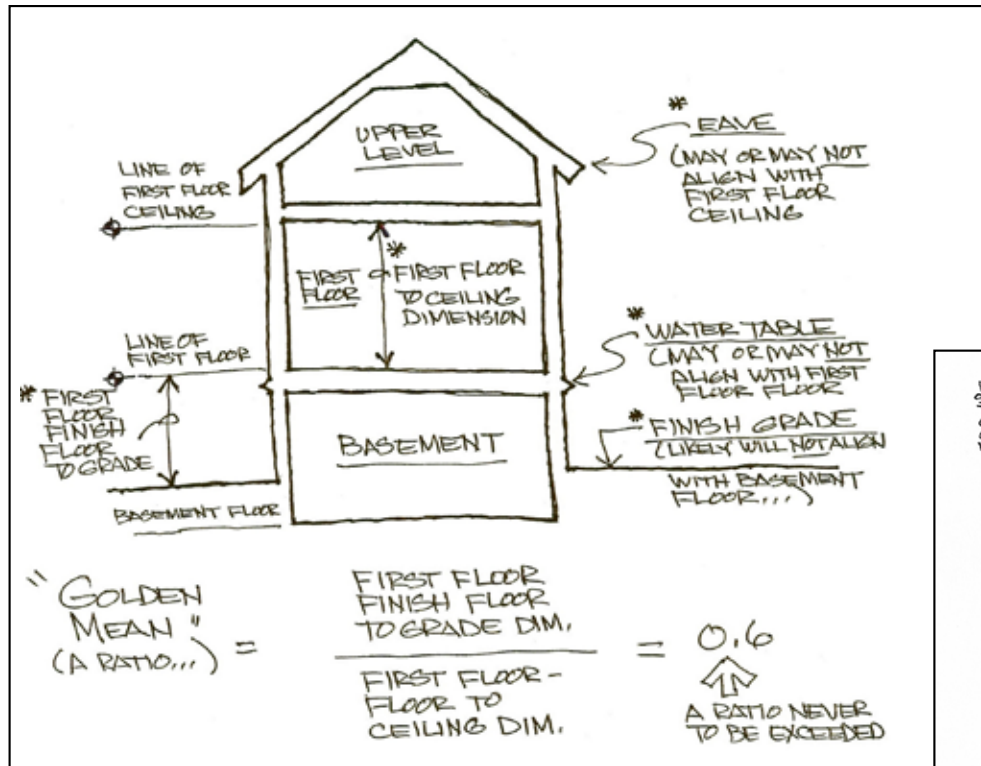 UPPER
LEVEL
LINE OF
FIRST FLOOR
CEILING
* EAVE
(MAY OR MAY NOT
ALIGN WITH
FIRST FLOOR
CEILING
FIRST
FLOOR
* FIRST FLOOR
TO CEILING
DIMENSION
LINE OF
FIRST FLOOR
* WATER TABLE
(MAY OR MAY NOT
ALIGN WITH FIRST
FLOOR FLOOR
* FIRST
FLOOR
FINISH
FLOOR
TO GRADE
BASEMENT
* FINISH GRADE
(LIKELY WILL NOT ALIGN
WITH BASEMENT
FLOOR...)
BASEMENT FLOOR
"GOLDEN
MEAN"
(A RATIO...)
=
FIRST FLOOR
FINISH FLOOR
TO GRADE DIM.
FIRST FLOOR -
FLOOR TO
CEILING DIM.
= 0.6
A RATIO NEVER
TO BE EXCEEDED